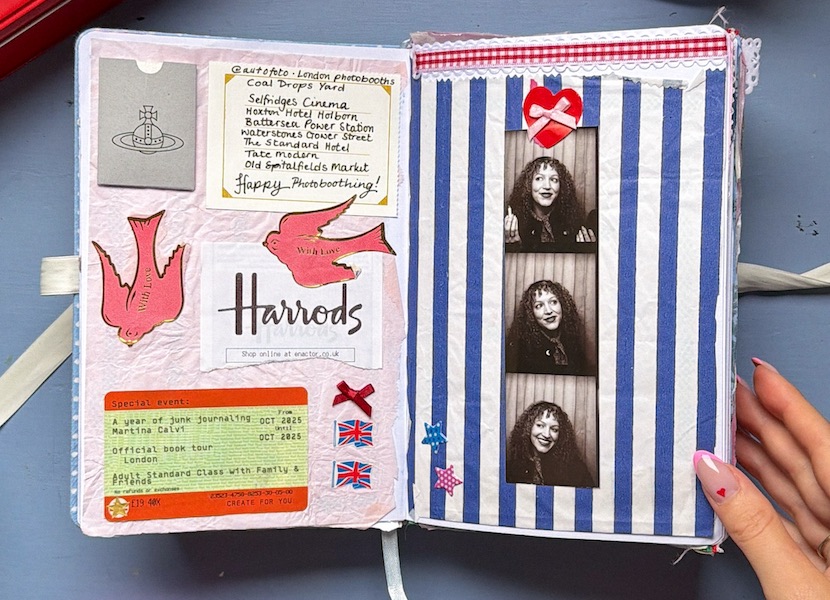 @autofoto · London photobooths
Coal Drops Yard
Selfridges Cinema
Hoxton Hotel Holborn
Battersea Power Station
Waterstones Gower Street
The Standard Hotel
Tate Modern
Old Spitalfields Market
Happy Photoboothing!
With Love
With Love
Harrods
Shop online at enactor.co.uk
Special event:
A year of junk journaling
Martina Calvi
From
OCT 2025
Until
OCT 2025
Official book tour
London
Adult Standard Class with Family &
Friends
No refunds or exchanges
£19.40X
CREATE FOR YOU